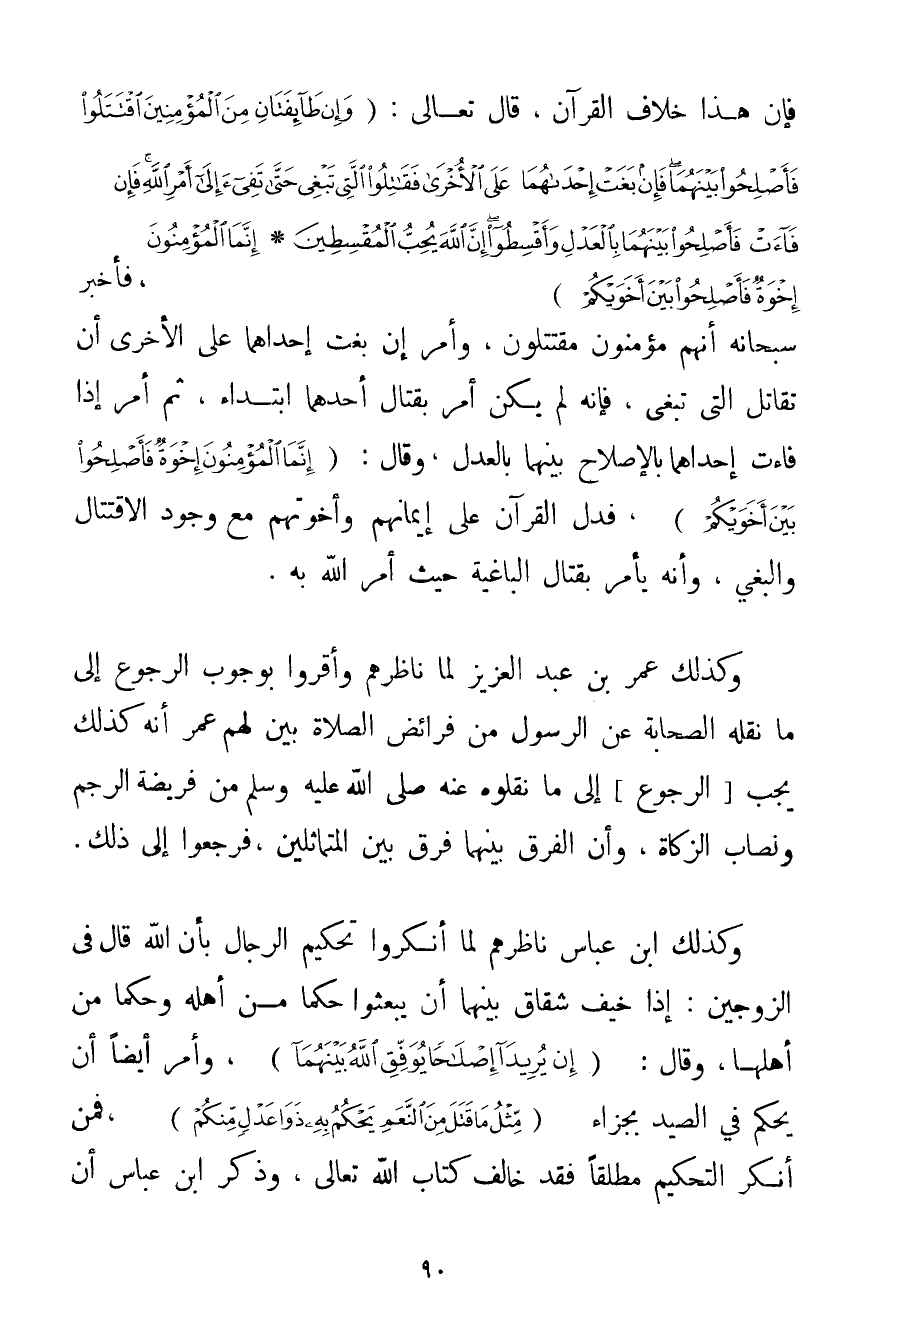 فإن هـذا خلاف القرآن ، قال تعـالى : ( وَإِن طَآئِفَتَانِ مِنَ ٱلْمُؤْمِنِينَ ٱقْتَتَلُوا۟
فَأَصْلِحُوا۟ بَيْنَهُمَا ۖ فَإِنۢ بَغَتْ إِحْدَىٰهُمَا عَلَى ٱلْأُخْرَىٰ فَقَٰتِلُوا۟ ٱلَّتِى تَبْغِى حَتَّىٰ تَفِىٓءَ إِلَىٰٓ أَمْرِ ٱللَّهِ ۚ فَإِن
فَآءَتْ فَأَصْلِحُوا۟ بَيْنَهُمَا بِٱلْعَدْلِ وَأَقْسِطُوٓا۟ ۖ إِنَّ ٱللَّهَ يُحِبُّ ٱلْمُقْسِطِينَ * إِنَّمَا ٱلْمُؤْمِنُونَ
إِخْوَةٌ فَأَصْلِحُوا۟ بَيْنَ أَخَوَيْكُمْ ) ، فأخبر
سبحانه أنهم مؤمنون مقتتلون ، وأمر إن بغت إحداهما على الأخرى أن
تقاتل التى تبغى ، فإنه لم يـكن أمر بقتال أحدهما ابتـداء ، ثم أمر إذا
فاءت إحداهما بالإصلاح بينهما بالعدل ، وقال : ( إِنَّمَا ٱلْمُؤْمِنُونَ إِخْوَةٌ فَأَصْلِحُوا۟
بَيْنَ أَخَوَيْكُمْ ) ، فدل القرآن على إيمانهم وأخوتهم مع وجود الاقتتال
والبغي ، وأنه يأمر بقتال الباغية حيث أمر الله به .
وكذلك عمر بن عبد العزيز لما ناظرهم وأقروا بوجوب الرجوع إلى
ما نقله الصحابة عن الرسول من فرائض الصلاة بين لهم عمر أنه كذلك
يجب [ الرجوع ] إلى ما نقلوه عنه صلى الله عليه وسلم من فريضة الرجم
ونصاب الزكاة ، وأن الفرق بينهما فرق بين المتماثلين ، فرجعوا إلى ذلك .
وكذلك ابن عباس ناظرهم لما أنـكروا تحكيم الرجال بأن الله قال فى
الزوجين : إذا خيف شقاق بينهما أن يبعثوا حكما مـن أهله وحكما من
أهلهـا ، وقال : ( إِن يُرِيدَآ إِصْلَٰحًا يُوَفِّقِ ٱللَّهُ بَيْنَهُمَآ ) ، وأمر أيضاً أن
يحكم في الصيد بجزاء ( مِّثْلُ مَا قَتَلَ مِنَ ٱلنَّعَمِ يَحْكُمُ بِهِۦ ذَوَا عَدْلٍ مِّنكُمْ ) ، فمن
أنـكر التحكيم مطلقاً فقد خالف كتاب الله تعالى ، وذكر ابن عباس أن
٩٠